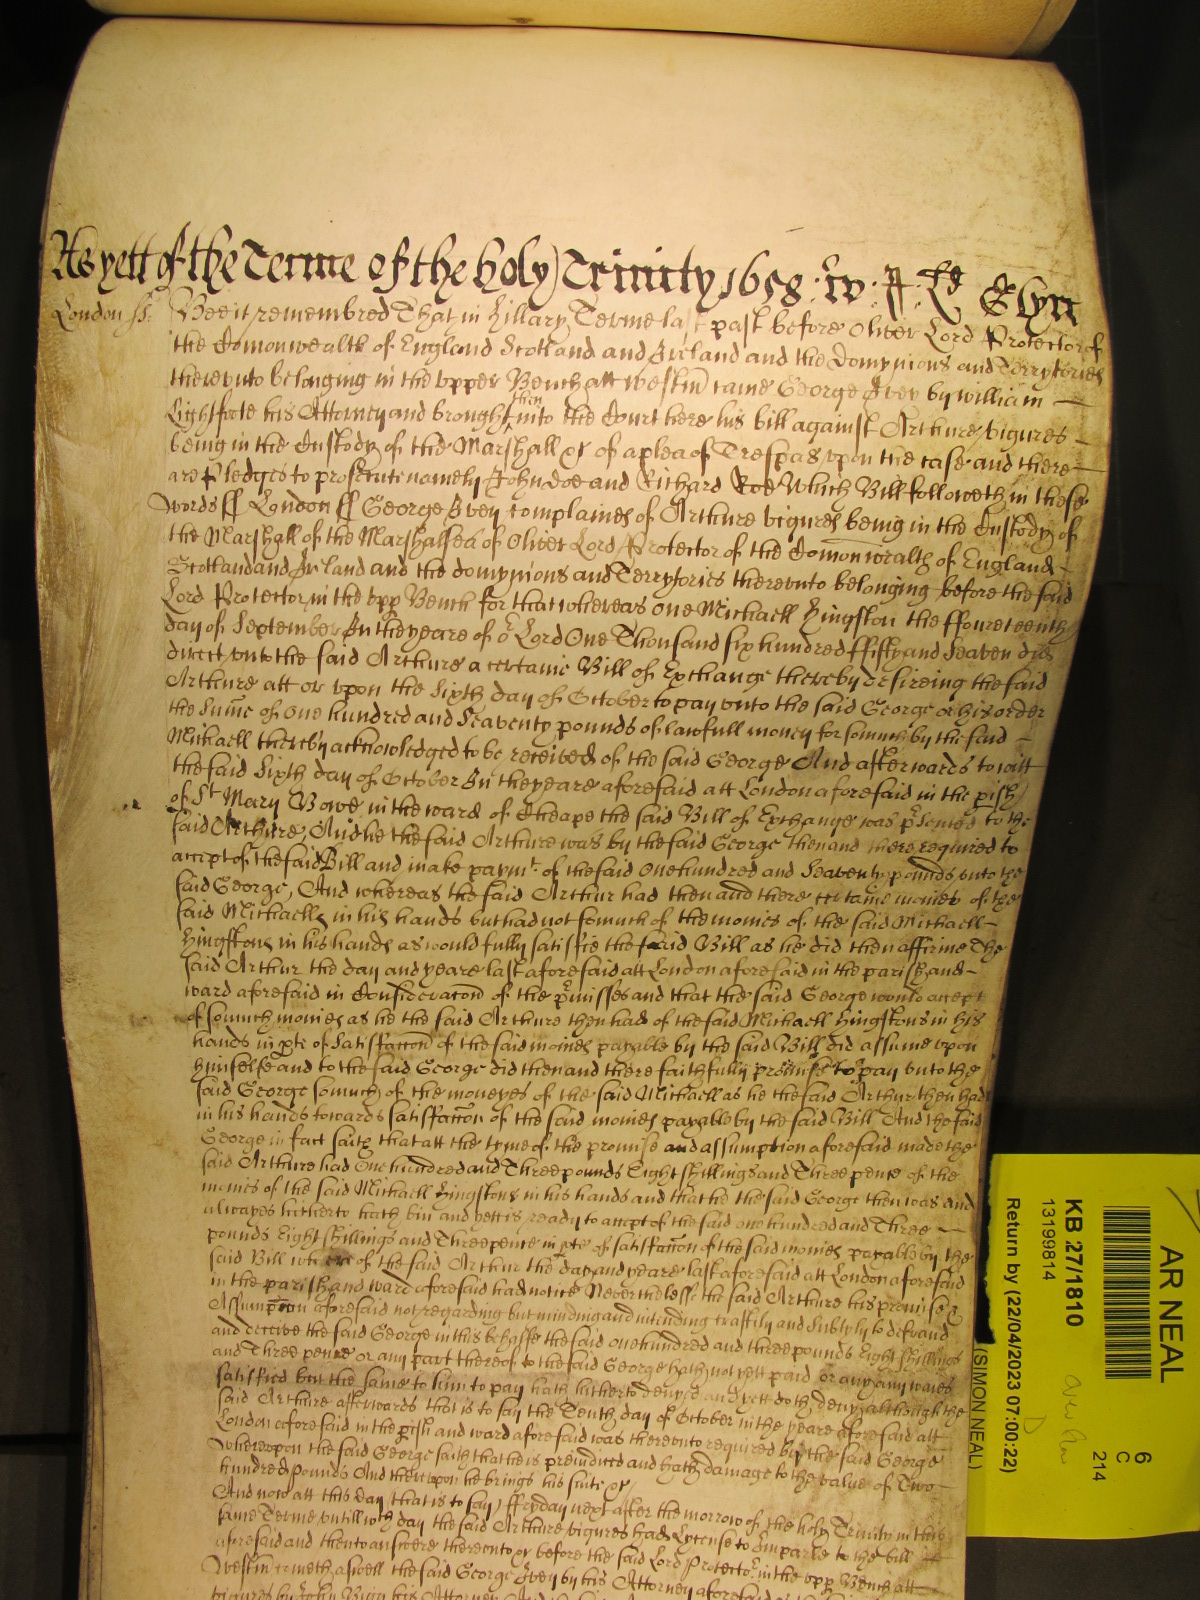 As yett of the Terme of the holy Trinity 1658
London ss. Bee it remembred That in Hillary Terme last past before Oliver Lord Protector of
the Comonwealth of England Scotland and Ireland and the Dominions and Terrytories
thereunto belonging in the upper Bench att Westm came George Ivey by William
Lightfoote his Attorney and brought then into the Court here his bill against Arthure Vigures
being in the Custody of the Marshall &c of a plea of Trespas upon the case and there
are Pledges to prosecute namely John Doe and Richard Roe Which Bill followeth in these
words ss London ss George Ivey complaines of Arthure Vigures being in the Custody of
the Marshall of the Marshalsea of Oliver Lord Protector of the Comonwealth of England
Scotland and Ireland and the dominions and Terrytories thereunto belonging before the said
Lord Protector in the upp Bench for that whereas one Michaell Kingston the ffoureteenth
day of September In the yeare of or Lord One Thousand six hundred ffifty and Seaven did
direct unto the said Arthure a certaine Bill of Exchange thereby desireing the said
Arthure att or upon the Sixth day of October to pay unto the said George or his order
the Sume of One hundred and Seaventy pounds of lawfull money for somuch by the said
Michaell thereby acknowledged to be received of the said George And afterwards to witt
the said Sixth day of October In the yeare aforesaid att London aforesaid in the pish
of St Mary Bowe in the ward of Cheape the said Bill of Exchange was psented to the
said Arthure And he the said Arthure was by the said George then and there required to
accept of the said Bill and make paymt of the said One hundred and Seaventy pounds unto the
said George, And whereas the said Arthur had then and there certaine monies of the
said Michaells in his hands but had not somuch of the monies of the said Michaell
Kingstons in his hands as would fully satisfie the said Bill as he did then affirme The
said Arthur the day and yeare last aforesaid att London aforesaid in the parish and
ward aforesaid in Consideracon of the pmisses and that the said George would accept
of somuch monies as he the said Arthure then had of the said Michaell Kingstons in his
hands in pte of Satisfaccon of the said monies payable by the said Bill did assume upon
himselfe and to the said George did then and there faithfully promise to pay unto the
said George somuch of the moneyes of the said Michaell as he the said Arthur then had
in his hands towards satisfaccon of the said monies payable by the said Bill And the said
George in fact saith that att the tyme of the promise and assumption aforesaid made the
said Arthure had One hundred and Three pounds Eight shillings and Three pence of the
monies of the said Michaell Kingstons in his hands and that he the said George then was and
alwayes hitherto hath bin and yett is ready to accept of the said one hundred and Three
pounds Eight shillings and Three pence in pte of satisfaccon of the said monies payable by the
said Bill whereof the said Arthur the day and yeare last aforesaid att London aforesaid
in the parish and ward aforesaid had notice Neverthelesse the said Arthure his promise &
Assumpcon aforesaid not regarding but minding and intending craftily and subtyly to defraud
and deceive the said George in this behalfe the said one hundred and three pounds Eight shillings
and Three pence or any part thereof to the said George hath not yett paid or any waies
satisfied but the same to him to pay hath hitherto denyed and yett doth deny although the
said Arthure afterwards that is to say the Tenth day of October in the yeare aforesaid att
London aforesaid in the pish and ward aforesaid was thereunto required by the said George
Whereupon the said George saith that he is prejudiced and hath damage to the value of Two
hundred pounds And thereupon he brings his suite &c
And now att this day that is to say ffryday next after the morrow of the holy Trinity in this
same Terme untill wch day the said Arthure Vigures had Lycense to Imparle to the bill
aforesaid and then to answere thereunto &c before the said Lord Protector in the upp Bench att
Westm cometh aswell the said George Ivey by his Attorney aforesaid
Vigures by John his Attorney
AR NEAL
KB 27/1810
13199814
Return by (22/04/2023 07:00:22)
(SIMON NEAL)
6
C
214